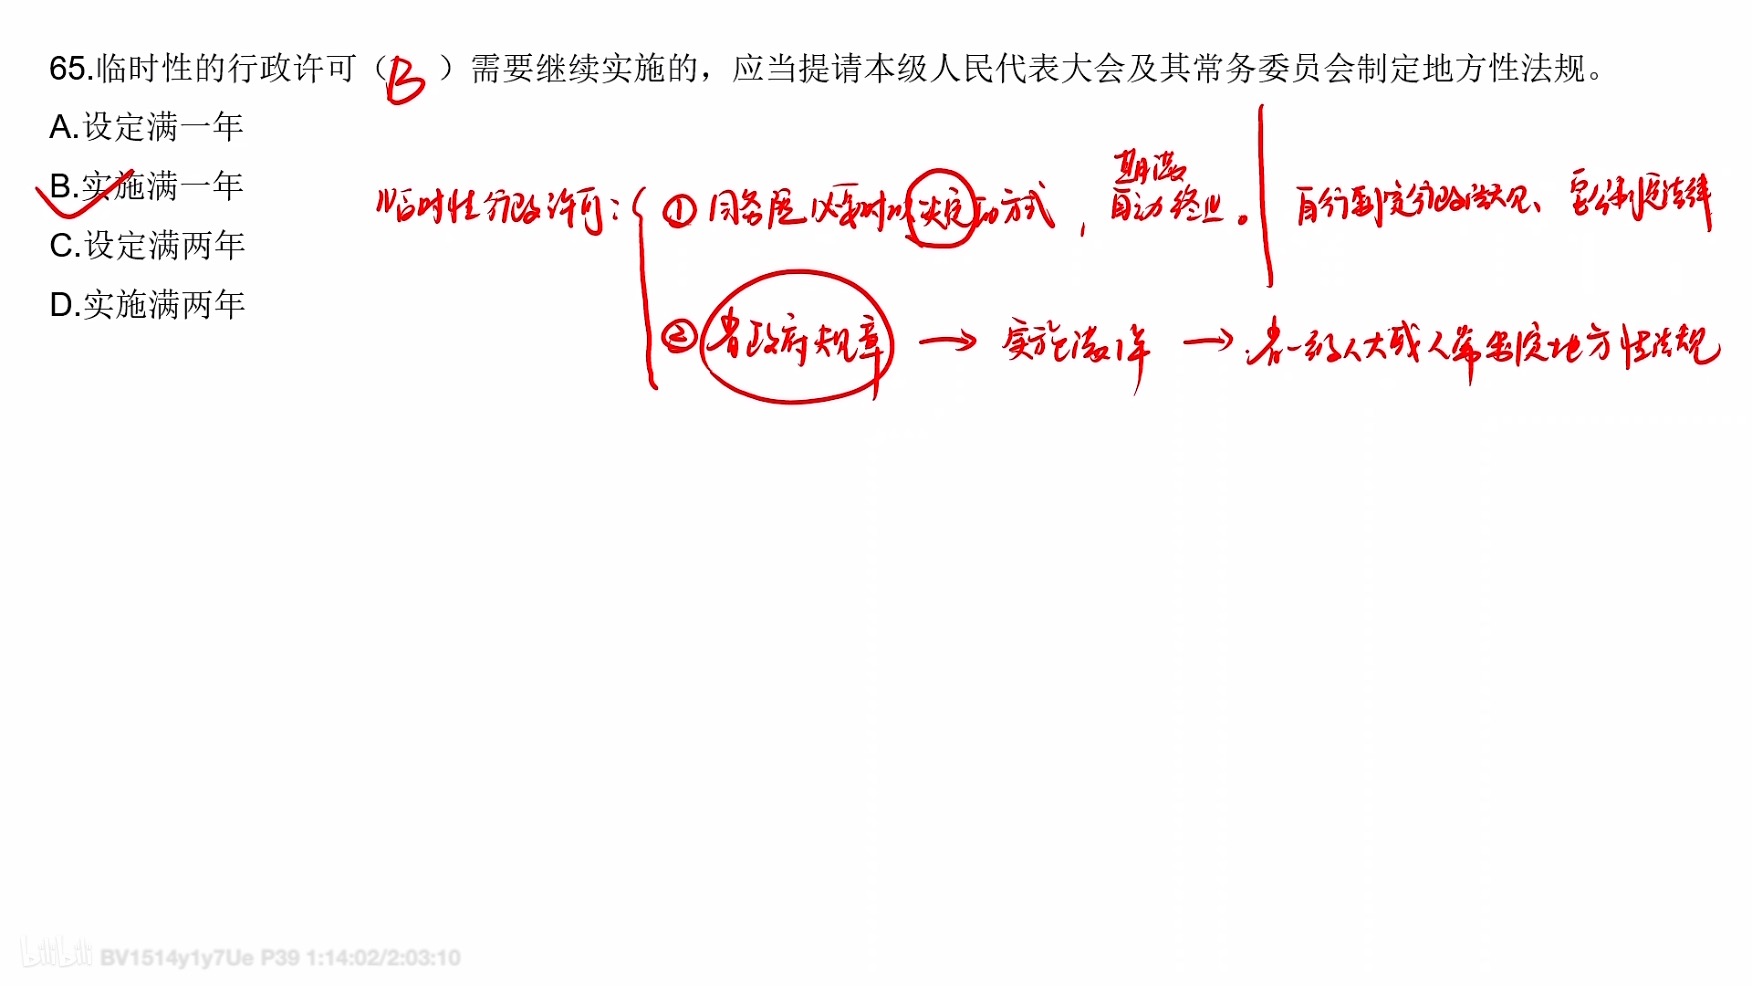 65.临时性的行政许可（B）需要继续实施的，应当提请本级人民代表大会及其常务委员会制定地方性法规。
A.设定满一年
B.实施满一年
C.设定满两年
D.实施满两年
期满
临时性行政许可：① 国务院必要时以决定的方式，自动终止。 自行制定行政法规、
② 省政府规章 → 实施满1年 → 省一级人大或人常 定地方性法规
bilibili BV1514y1y7Ue P39 1:14:02/2:03:10